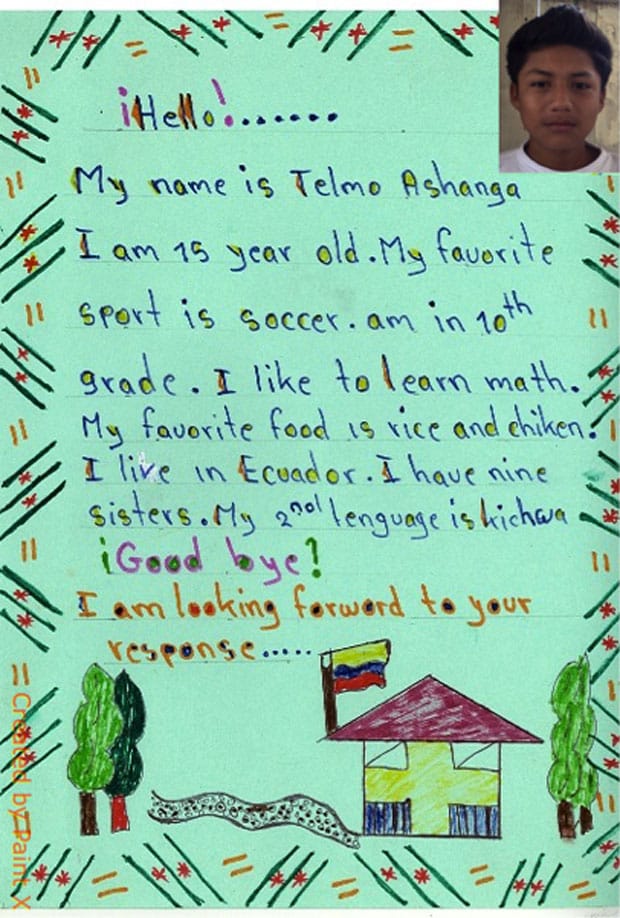 ¡Hello!.......
My name is Telmo Ashanga
I am 15 year old. My favorite
sport is soccer. am in 10th
grade. I like to learn math.
My favorite food is rice and chiken.
I live in Ecuador. I have nine
sisters. My 2nd lenguage is kichwa
¡Good bye!
I am looking forword to your
response.....
Created by Paint X